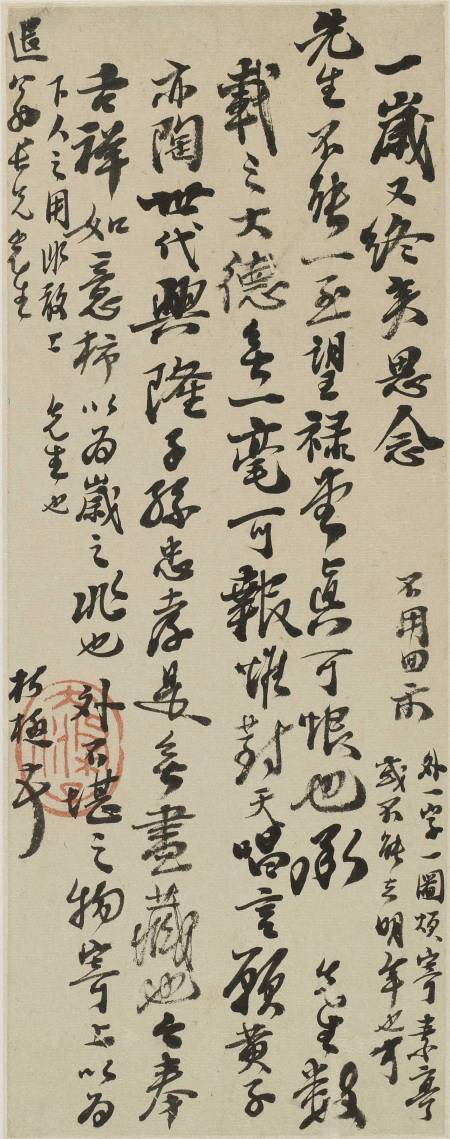 一歲又終矣思念
先生不能一至望禄堂真可恨也承 先生數
載之大德無一毫可報惟對天唱言願黃子
亦陶世代興隆子孫忠孝是無盡藏也今奉
吉祥如意柿以為歲之兆也外不堪之物寄上以為
下人之用非敢上 先生也
退翁長兄先生
朽極
不用回示
外一字一圖煩寄素亭
或不能立明年也可